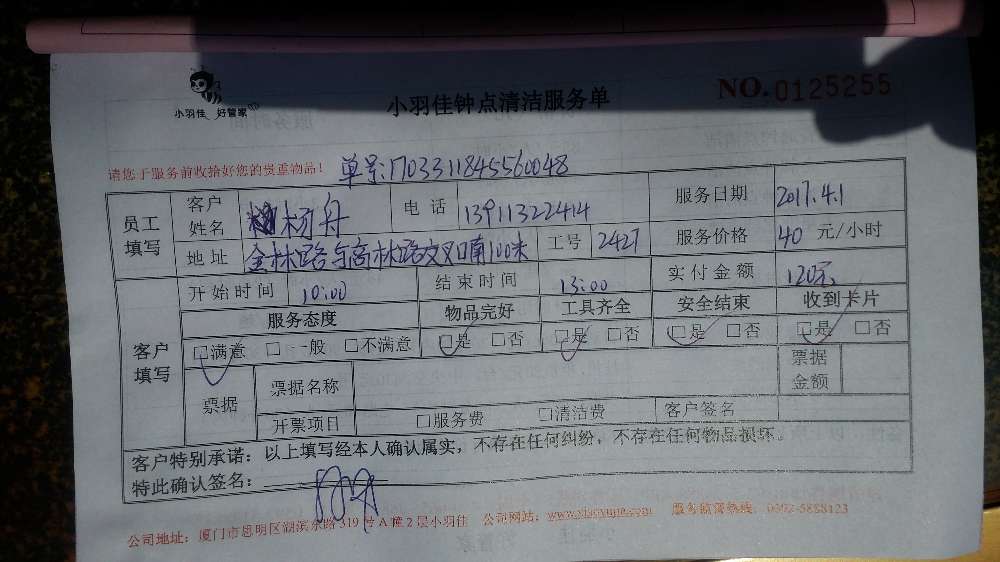 小羽佳 好管家
小羽佳钟点清洁服务单
NO.0125255
请您于服务前收拾好您的贵重物品！
单号:1703311845560048
员工填写 客户姓名 杨舟 电话 13911322414 服务日期 2017.4.1
地址 金林路与高林路交叉口南100米 工号 2427 服务价格 40 元/小时
客户填写 开始时间 10:00 结束时间 13:00 实付金额 120元
服务态度 物品完好 工具齐全 安全结束 收到卡片
□满意 □一般 □不满意 □是 □否 □是 □否 □是 □否 □是 □否
票据 票据名称 票据金额
开票项目 □服务费 □清洁费 客户签名
客户特别承诺：以上填写经本人确认属实，不存在任何纠纷，不存在任何物品损坏。
特此确认签名：
公司地址：厦门市思明区湖滨东路319号A幢2层小羽佳 公司网站：www.xiaoyujia.com 服务监督热线：0592-5888123